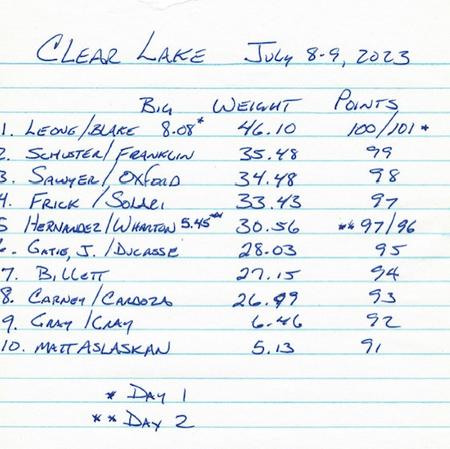 CLEAR LAKE JULY 8-9, 2023
BIG WEIGHT POINTS
1. LEONG/BLAKE 8.08* 46.10 100/101*
2. SCHUSTER/FRANKLIN 35.48 99
3. SAWYER/OXFORD 34.48 98
4. FRICK/SOLARI 33.43 97
5 HERNANDEZ/WHARTON 5.45** 30.56 **97/96
6. GATIE, J./DUCASSE 28.03 95
7. BILLETT 27.15 94
8. CARNEY/CARDOZA 26.99 93
9. GRAY/GRAY 6.46 92
10. MATT ASLASKAN 5.13 91
* DAY 1
** DAY 2